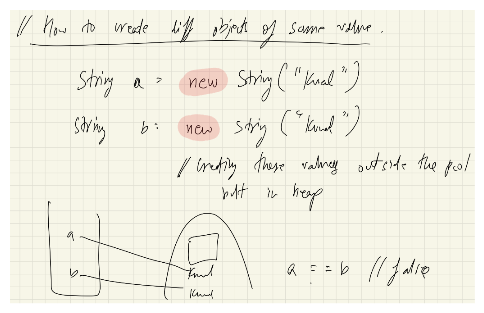 // How to create diff objects of same value.
String a = new String ("Kunal")
String b = new String ("Kunal")
// creating these values outside the pool
but in heap
a
b
Kunal
Kunal
a == b // false